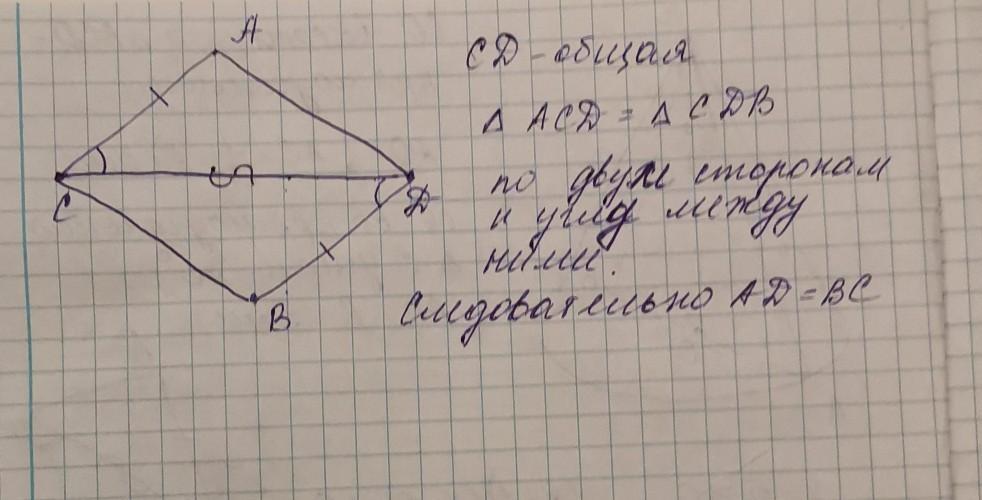 A
C
D
B
CD - общая
Δ ACD = Δ CDB
по двух сторонам
и углу между
ними.
Следовательно AD = BC